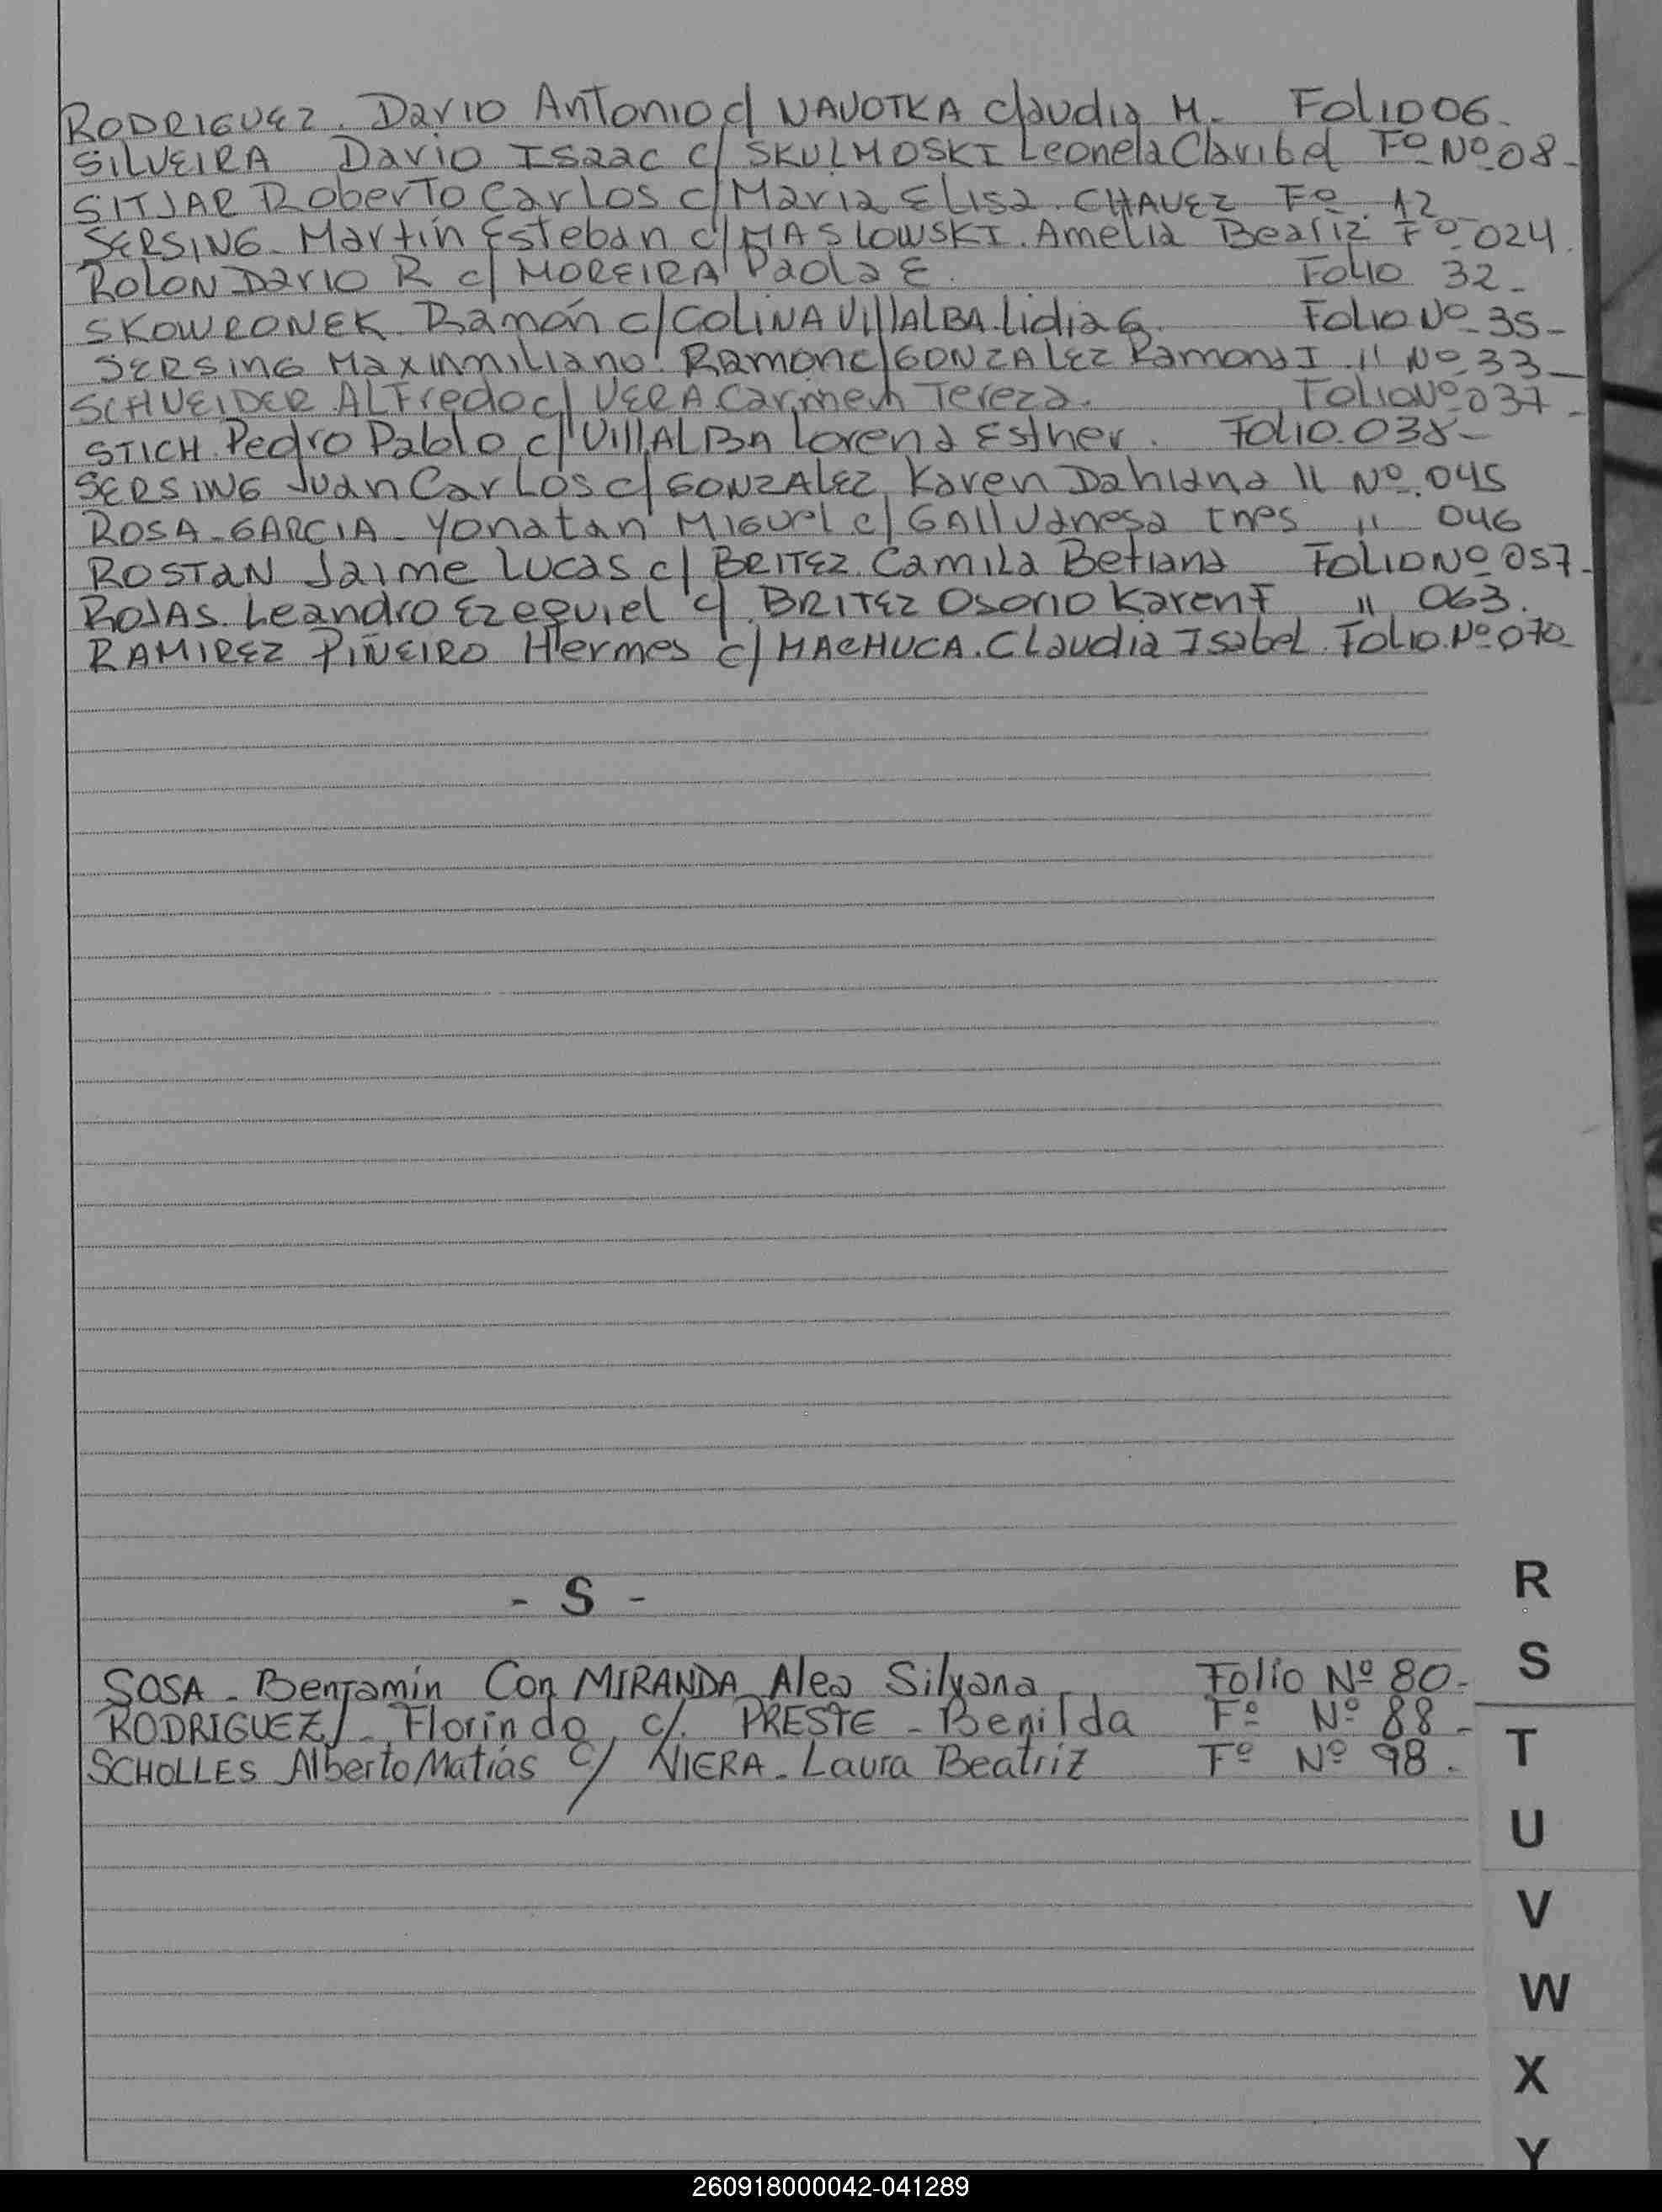 RODRIGUEZ. Dario Antonio c/ NAVOTKA Claudia M. Folio 06.
SILVEIRA Dario Isaac c/ SKULMOSKI Leonela Claribel Fº Nº 08-
SITJAR Roberto Carlos c/ Maria Elisa. CHAVEZ Fº 12
SERSING- Martín Esteban c/ MASLOWSKI. Amelia Beatriz Fº 024.
ROLON Dario R c/ MOREIRA Paola E. Folio 32-
SKOWRONEK Ramón c/ COLINA VillALBA Lidia G. Folio Nº 35-
SERSING Maximiliano Ramon c/ GONZALEZ Ramona I 11 Nº 33-
SCHNEIDER ALFredo c/ VERA Carmen Tereza. Folio Nº 037-
STICH Pedro Pablo c/ VillALBA Lorena Esther. Folio 038-
SERSING Juan Carlos c/ GONZALEZ Karen Dahiana 11 Nº. 045
ROSA-GARCIA- Yonatan Miguel c/ GAll Vanesa Ines 11 046
ROSTAN Jaime Lucas c/ BRITEZ. Camila Betiana Folio Nº 057-
ROJAS. Leandro Ezequiel c/ BRITEZ Osorio Karen F 11 063.
RAMIREZ PIÑEIRO Hermes c/ MACHUCA. Claudia Isabel. Folio. Nº 070-
R
- S -
S
SOSA - Benjamín Con MIRANDA Silvana Folio Nº 80-
RODRIGUEZ - Florindo c/. PRESTE - Benilda Fº Nº 88-
T
SCHOLLES Alberto Matías c/ NIERA- Laura Beatriz Fº Nº 98.
U
V
W
X
Y
260918000042-041289